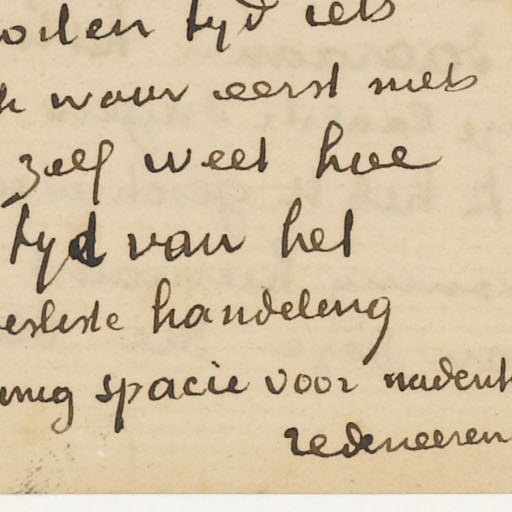 tyd iets
waar eerst niets
zelf weet hoe
tyd van het
handeling
spacie voor nadenk
redeneeren